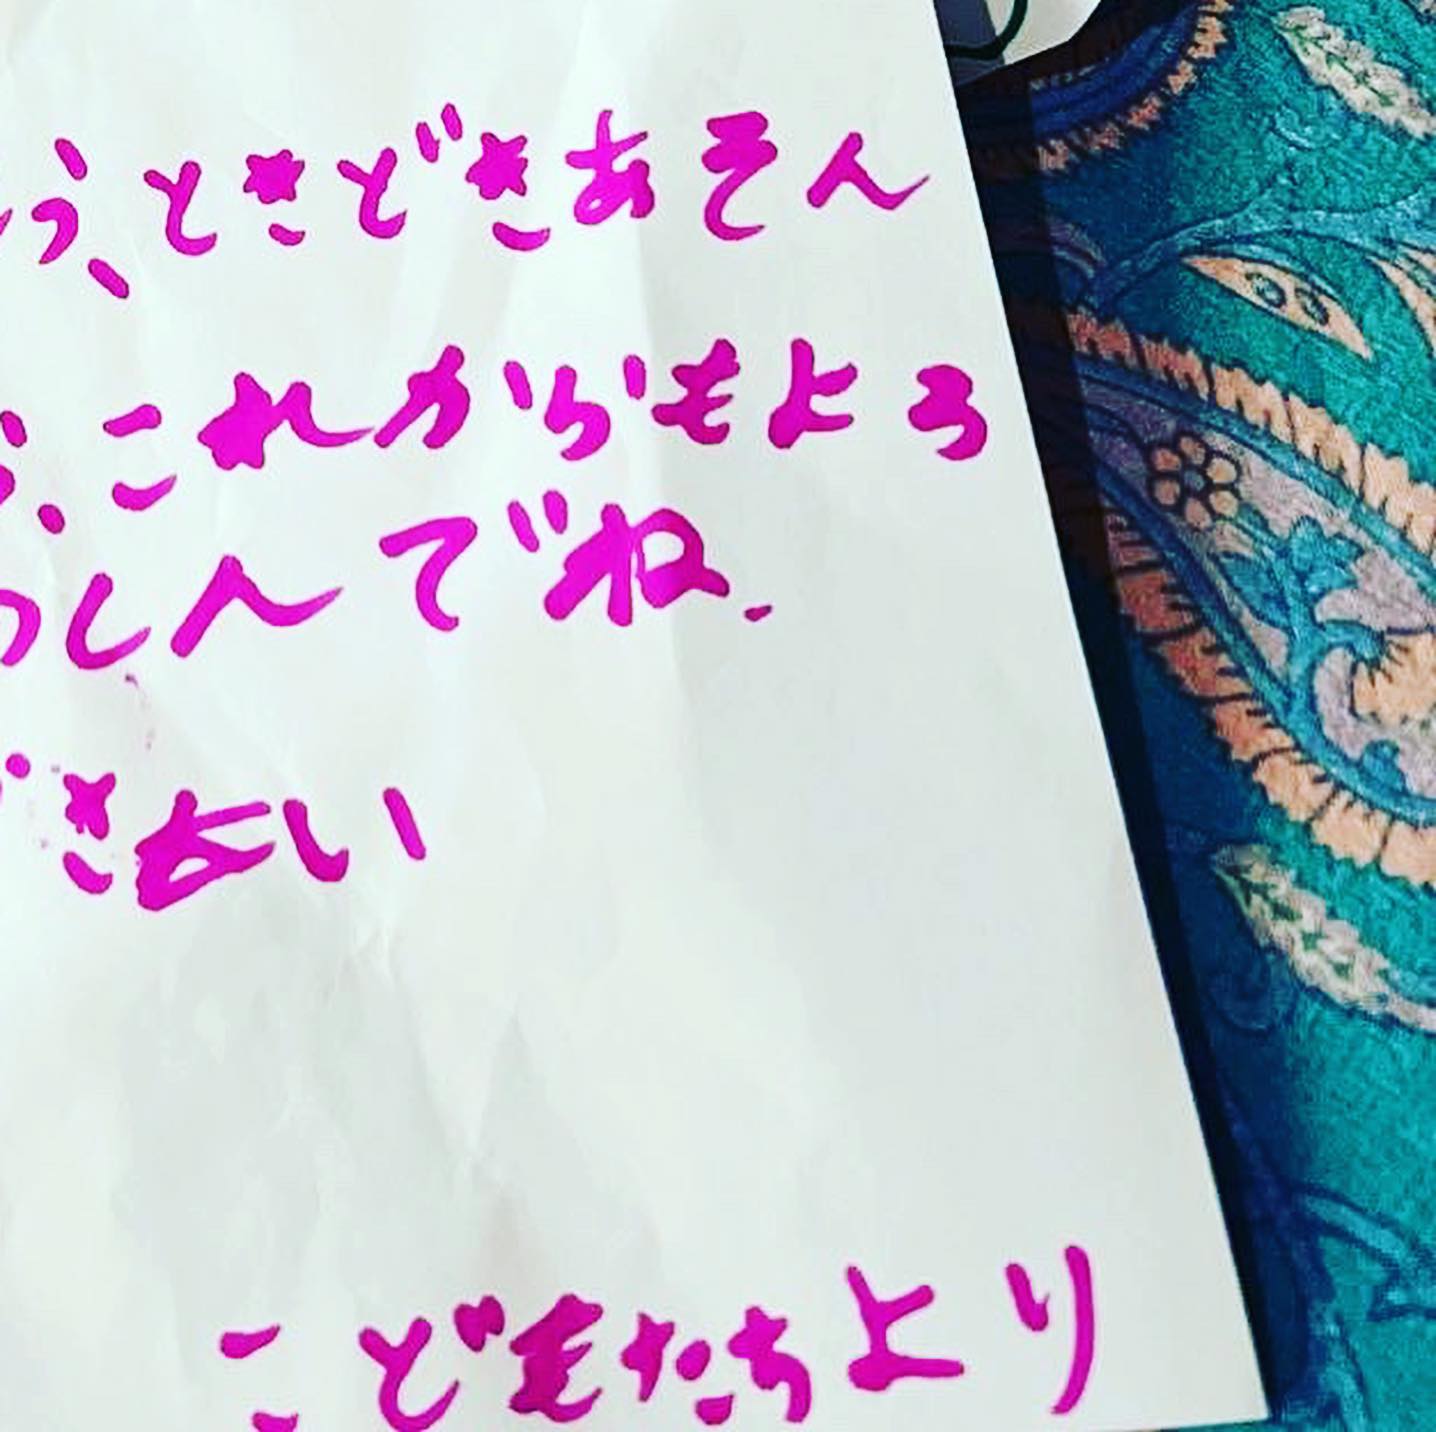 う、ときどきあそん
、これからもよろ
しんでね.
さい
こどもたちより